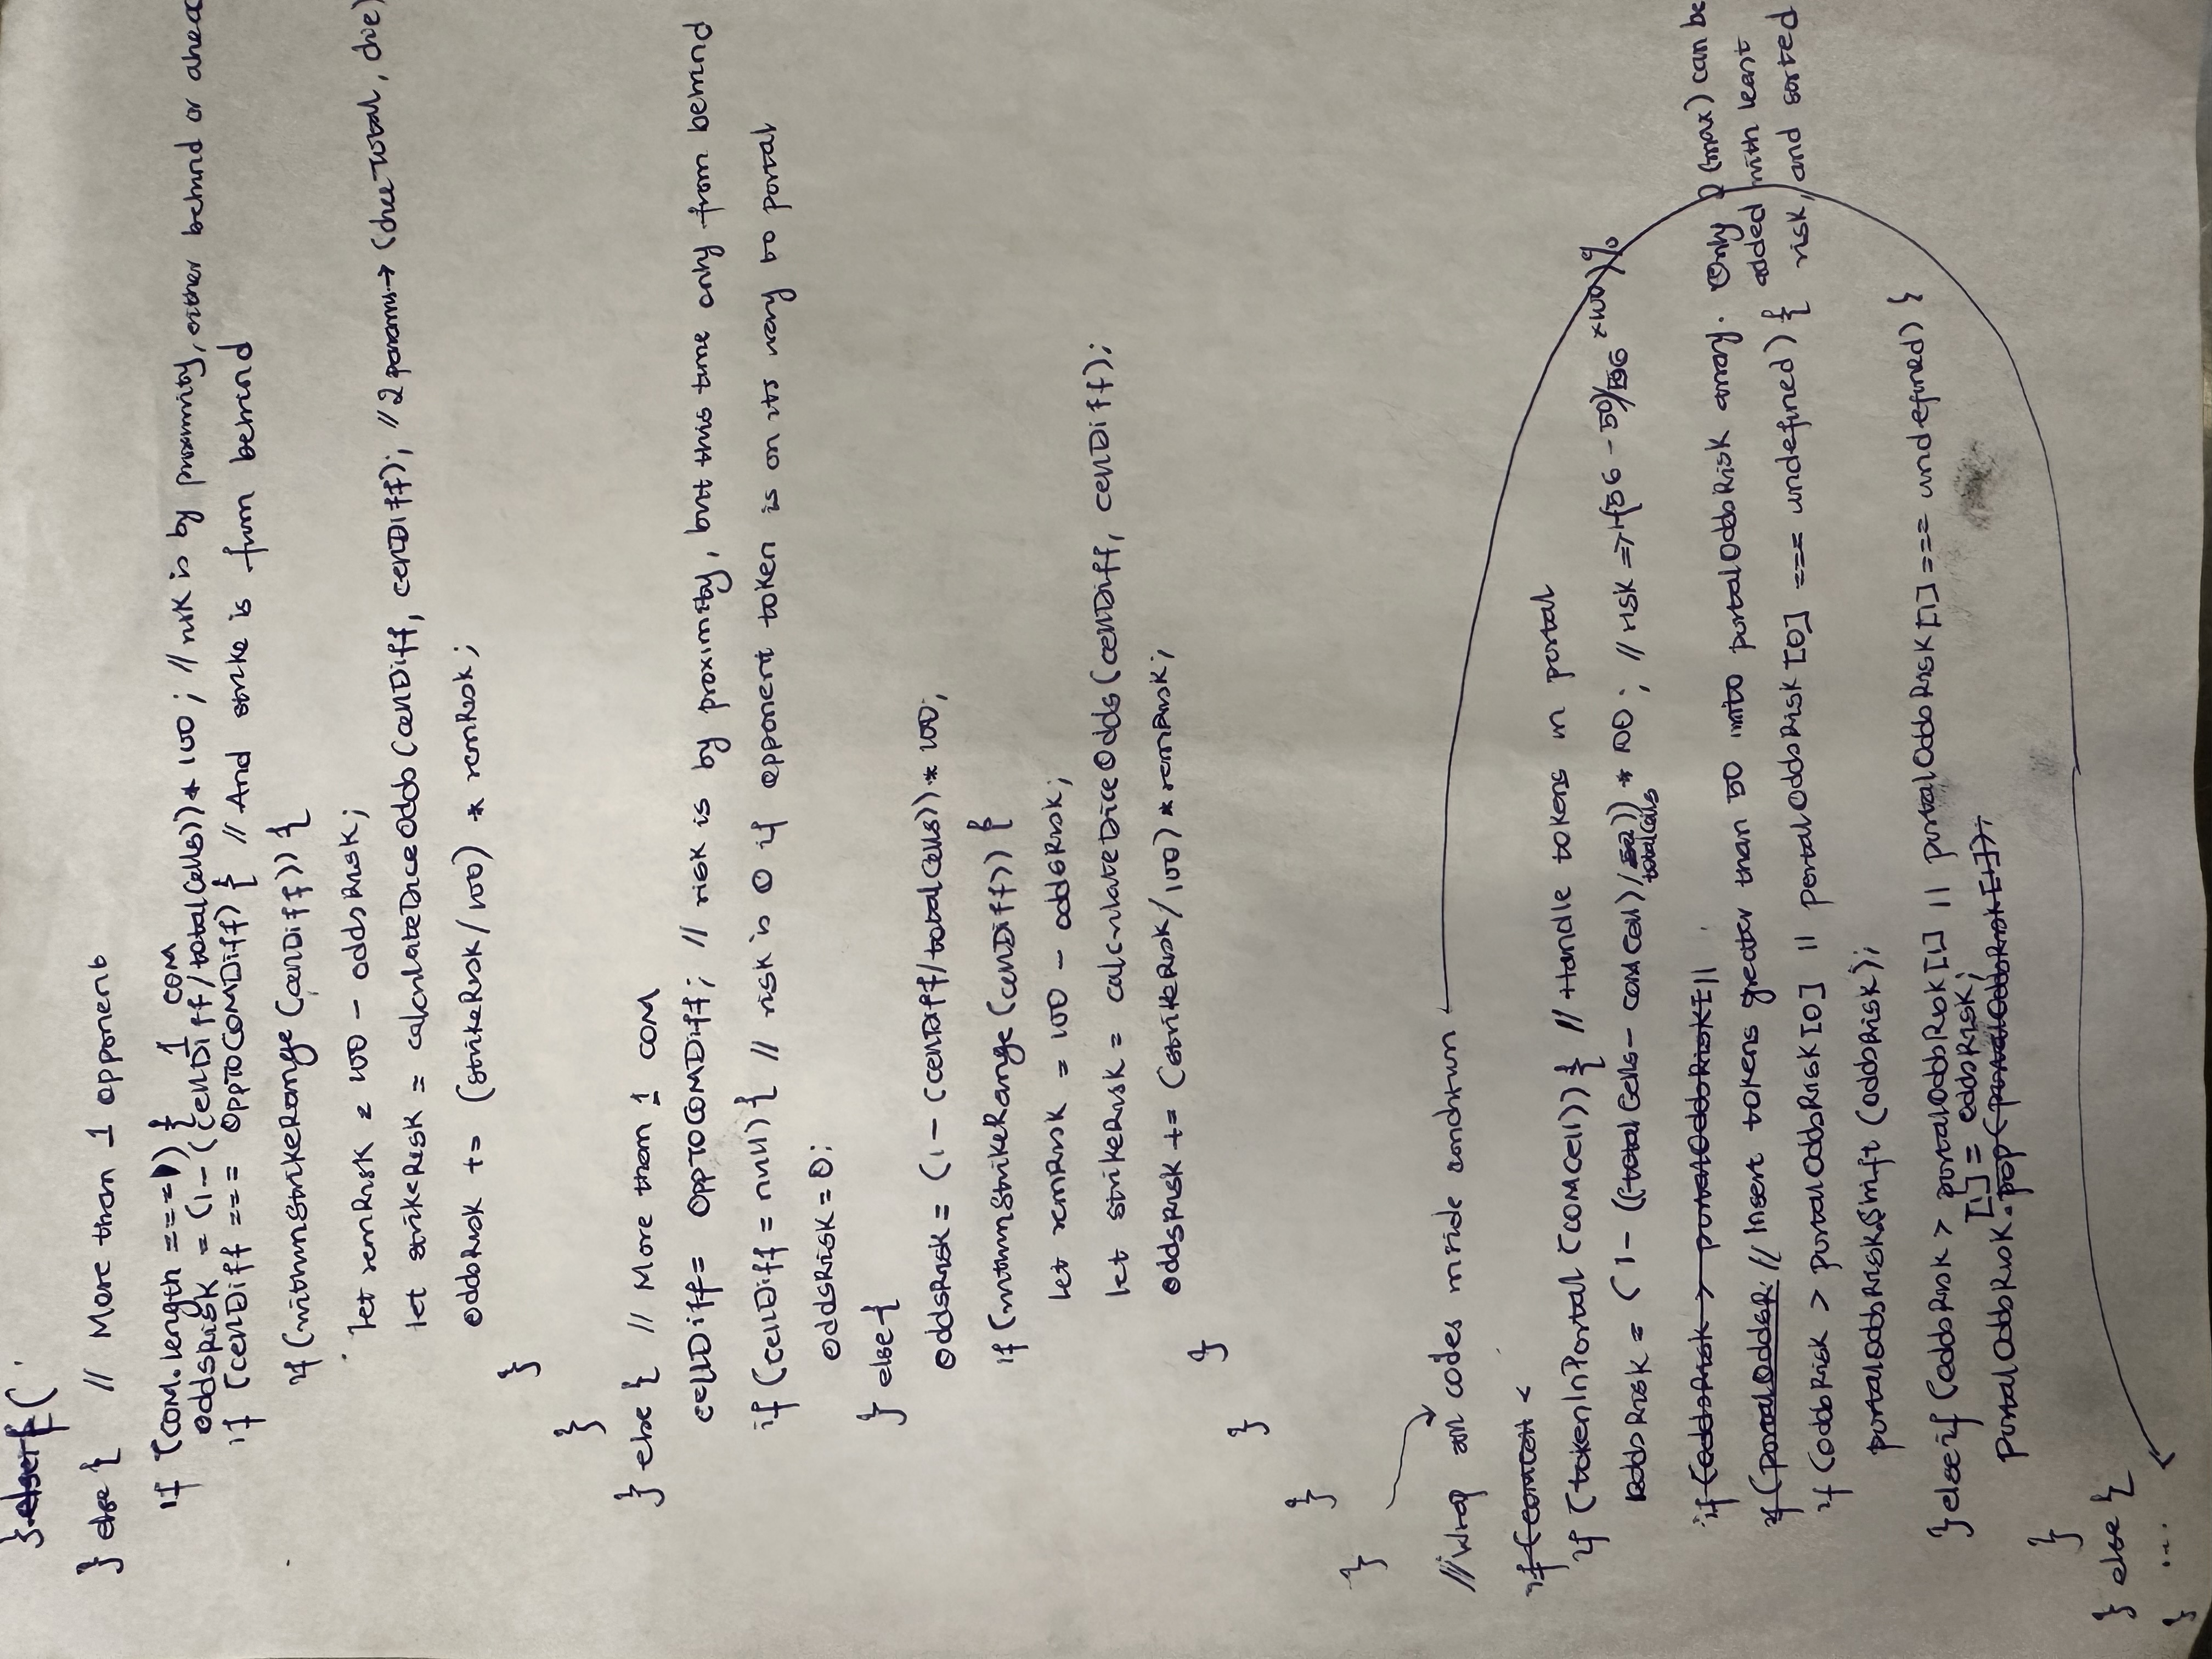 } else if (
} else { // More than 1 opponent
if (COM.length === 1) { 1 COM
oddsRisk = (1 - (cellDiff/totalCells)) * 100; // risk is by proximity, either behind or ahead
if (cellDiff === OppToCOMDiff) { // And strike is from behind
if (withinStrikeRange (cellDiff)) {
let remRisk = 100 - oddsRisk;
let strikeRisk = calculateDiceOdds (cellDiff, cellDiff); // 2 params → (diceTotal, die)
oddsRisk += (strikeRisk/100) * remRisk;
}
}
} else { // More than 1 COM
cellDiff = OppToCOMDiff; // risk is by proximity, but this time only from behind
if (cellDiff = null) { // risk is 0 if opponent token is on its way to portal
oddsRisk = 0;
} else {
oddsRisk = (1 - (cellDiff/totalCells)) * 100;
if (withinStrikeRange (cellDiff)) {
let remRisk = 100 - oddsRisk;
let strikeRisk = calculateDiceOdds (cellDiff, cellDiff);
oddsRisk += (strikeRisk/100) * remRisk;
}
}
}
}
// Wrap all codes inside condition
if (COMCell <
if (tokenInPortal (COMCell)) { // Handle tokens in portal
oddsRisk = (1 - ((total Cells - COMCell)/52)) * 100; // risk => 1-(56 - 50)/56 × 100)%
totalCells
if (oddsRisk > portalOddsRisk[ ||
if (portalOddsR. // Insert tokens greater than 50 into portalOddsRisk array. Only 2 (max) can be
added with least
if (oddsRisk > portalOddsRisk[0] || portalOddsRisk[0] === undefined) { risk, and sorted
portalOddsRisk.Shift (oddsRisk);
} else if (oddsRisk > portalOddsRisk[1] || portalOddsRisk[1] === undefined) {
[1] = oddsRisk;
portalOddsRisk.pop (portalOddsRisk[1]);
}
} else {
} ...